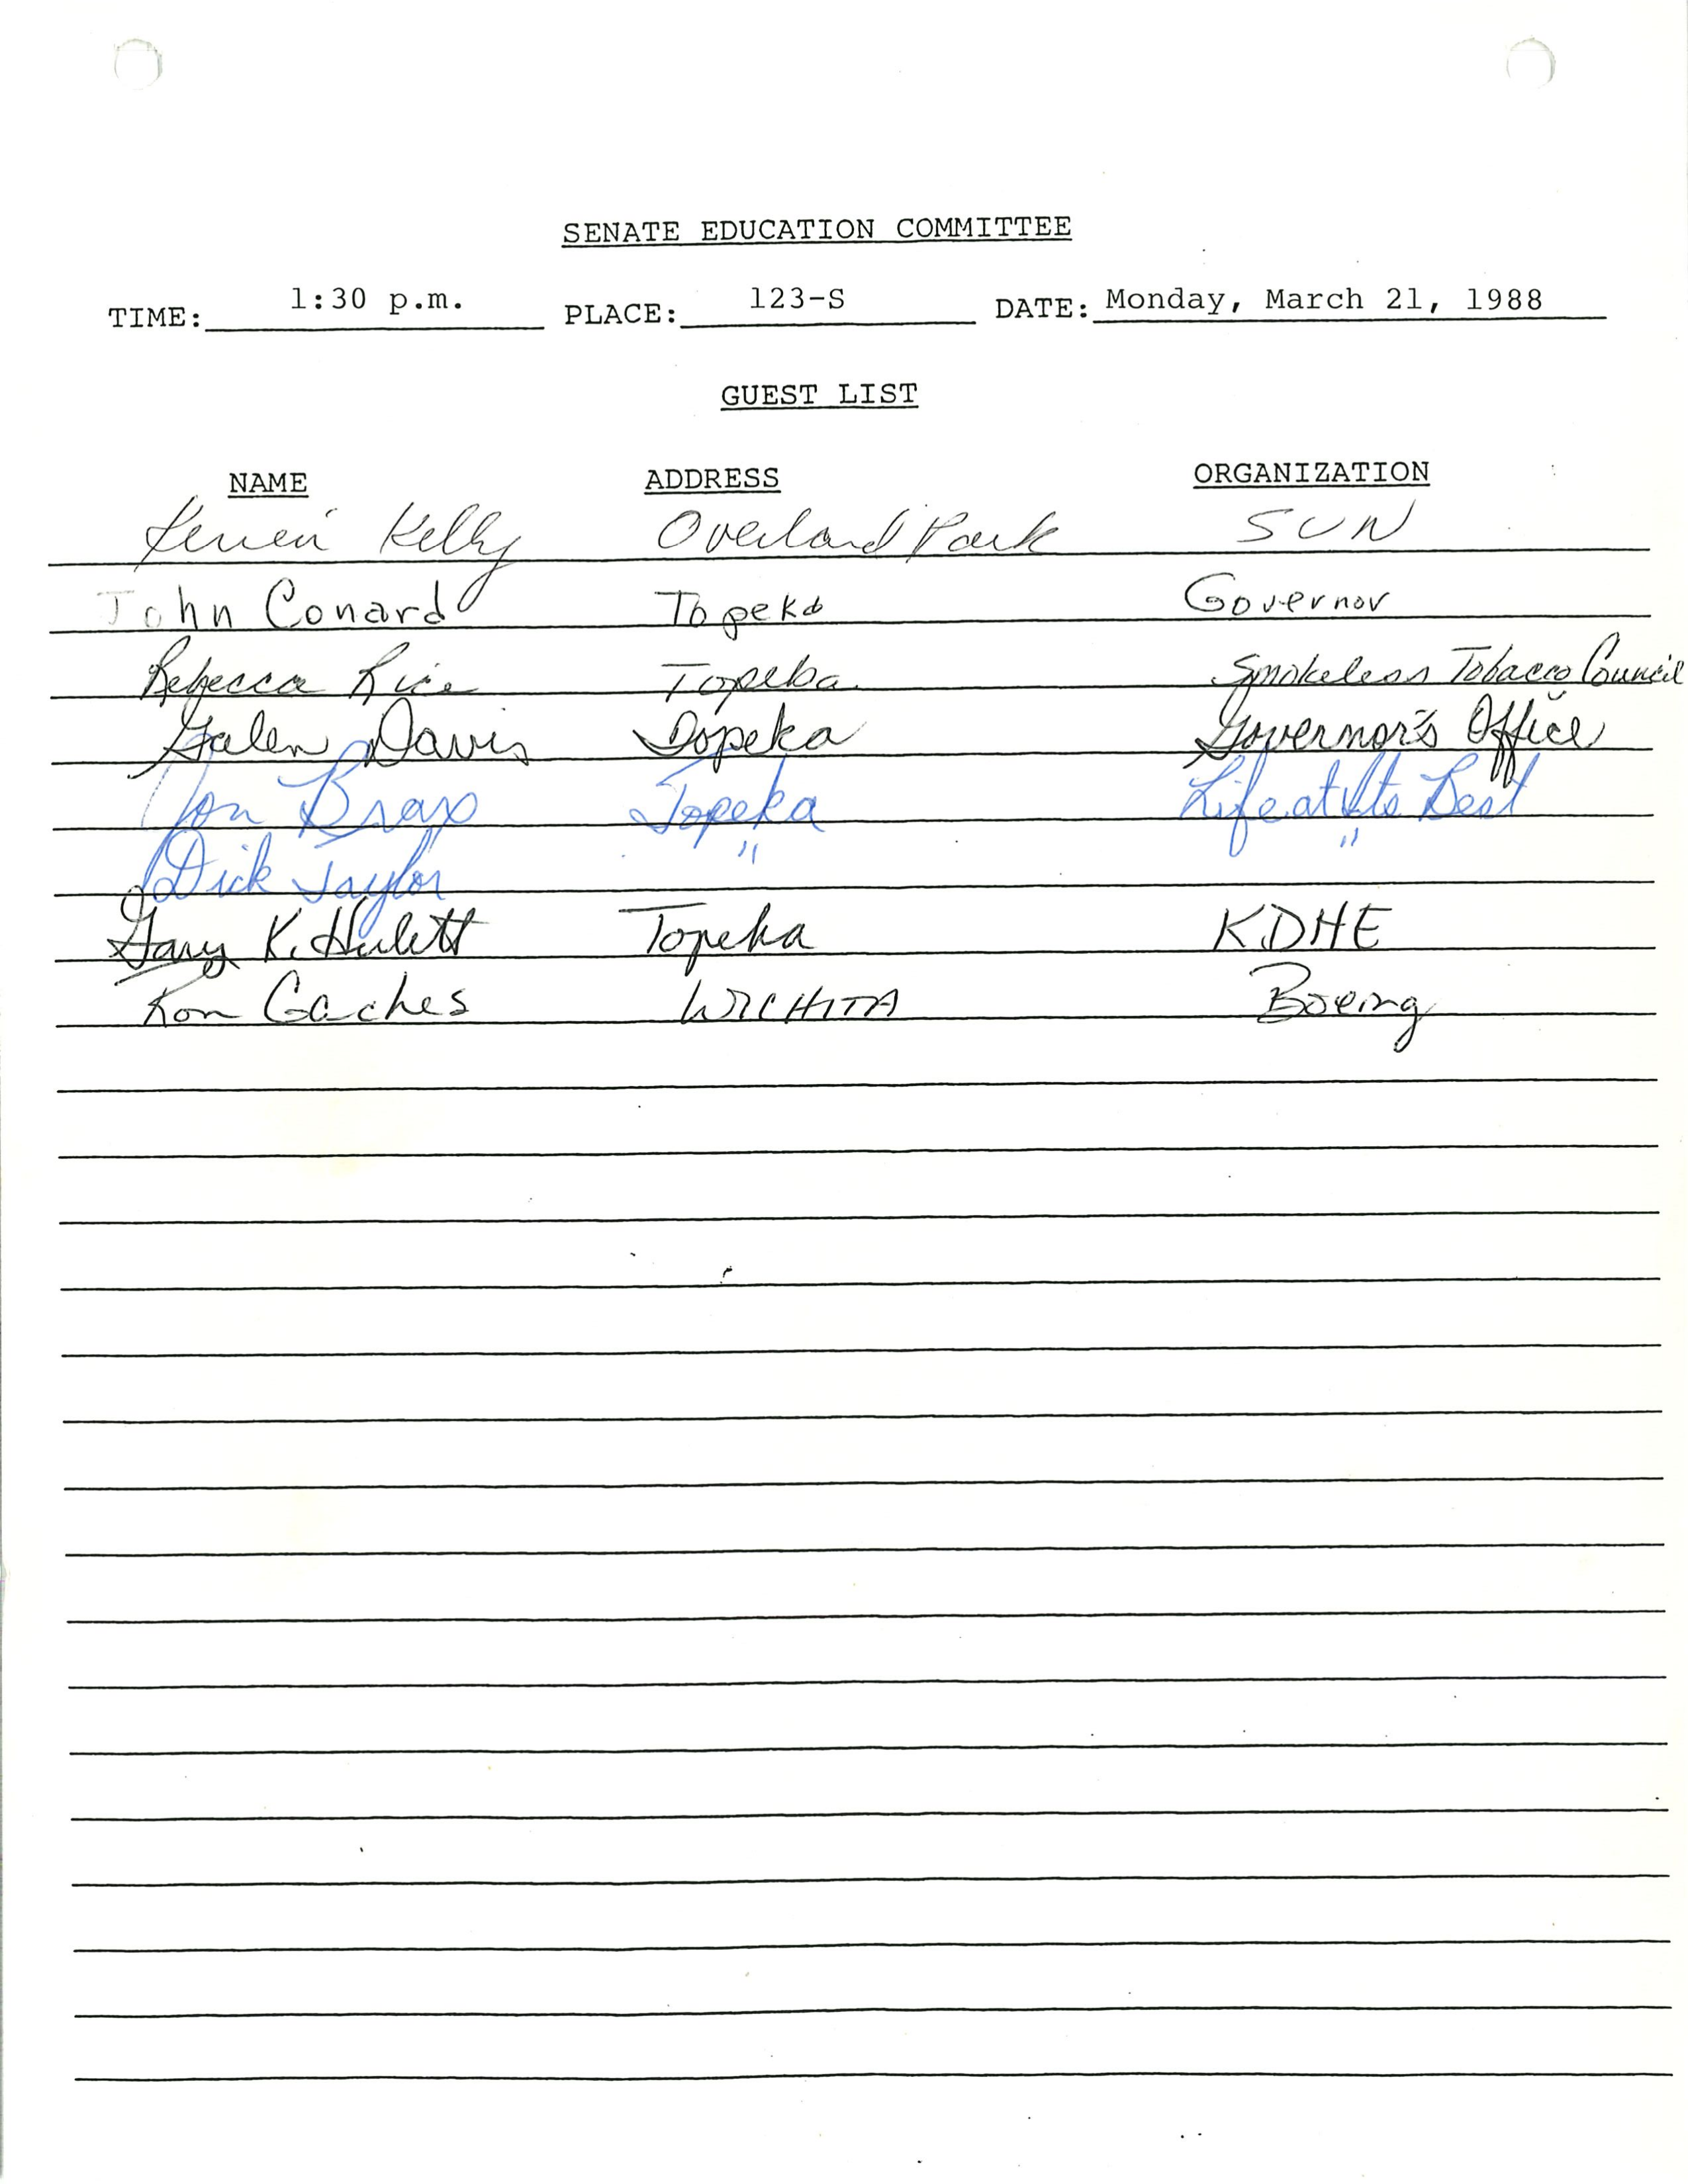 SENATE EDUCATION COMMITTEE
TIME: 1:30 p.m. PLACE: 123-S DATE: Monday, March 21, 1988
GUEST LIST
NAME ADDRESS ORGANIZATION
Kelly Overland Park SUN
John Conard Topeka Governor
Rebecca Rice Topeka Smokeless Tobacco Council
Galen Davis Topeka Governor's Office
Topeka Life at Its Best
Dick Taylor " "
Gary K. Hulett Topeka KDHE
Ron Gaches WICHITA Boeing